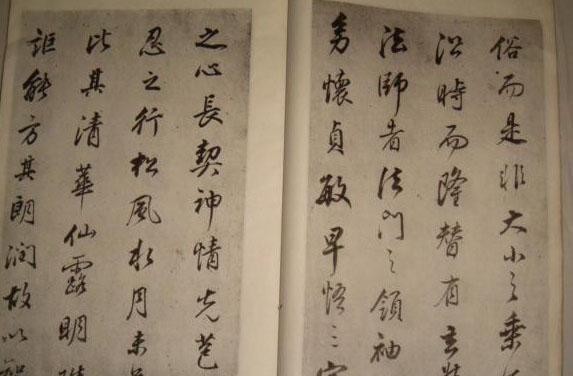 俗而是非大小之乘
沿時而隆替有玄奘
法師者法門之領袖
幼懷貞敏早悟三空
之心長契神情先苞
忍之行松風水月未
比其清華仙露明珠
詎能方其朗潤故以智